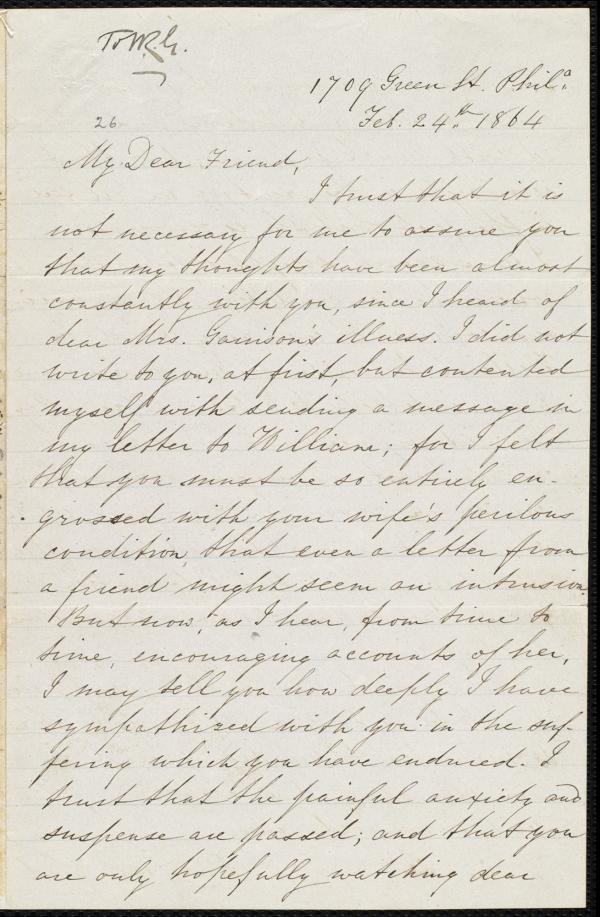 To W.L.G.
1709 Green St. Phila.
26 Feb. 24th. 1864
My Dear Friend,
I trust that it is
not necessary for me to assure you
that my thoughts have been almost
constantly with you, since I heard of
dear Mrs. Garrison's illness. I did not
write to you, at first, but contented
myself with sending a message in
my letter to William; for I felt
that you must be so entirely en-
grossed with your wife's perilous
condition, that even a letter from
a friend might seem an intrusion.
But now, as I hear, from time to
time, encouraging accounts of her,
I may tell you how deeply I have
sympathized with you in the suf-
fering which you have endured. I
trust that the painful anxiety and
suspense are passed; and that you
are only hopefully watching dear